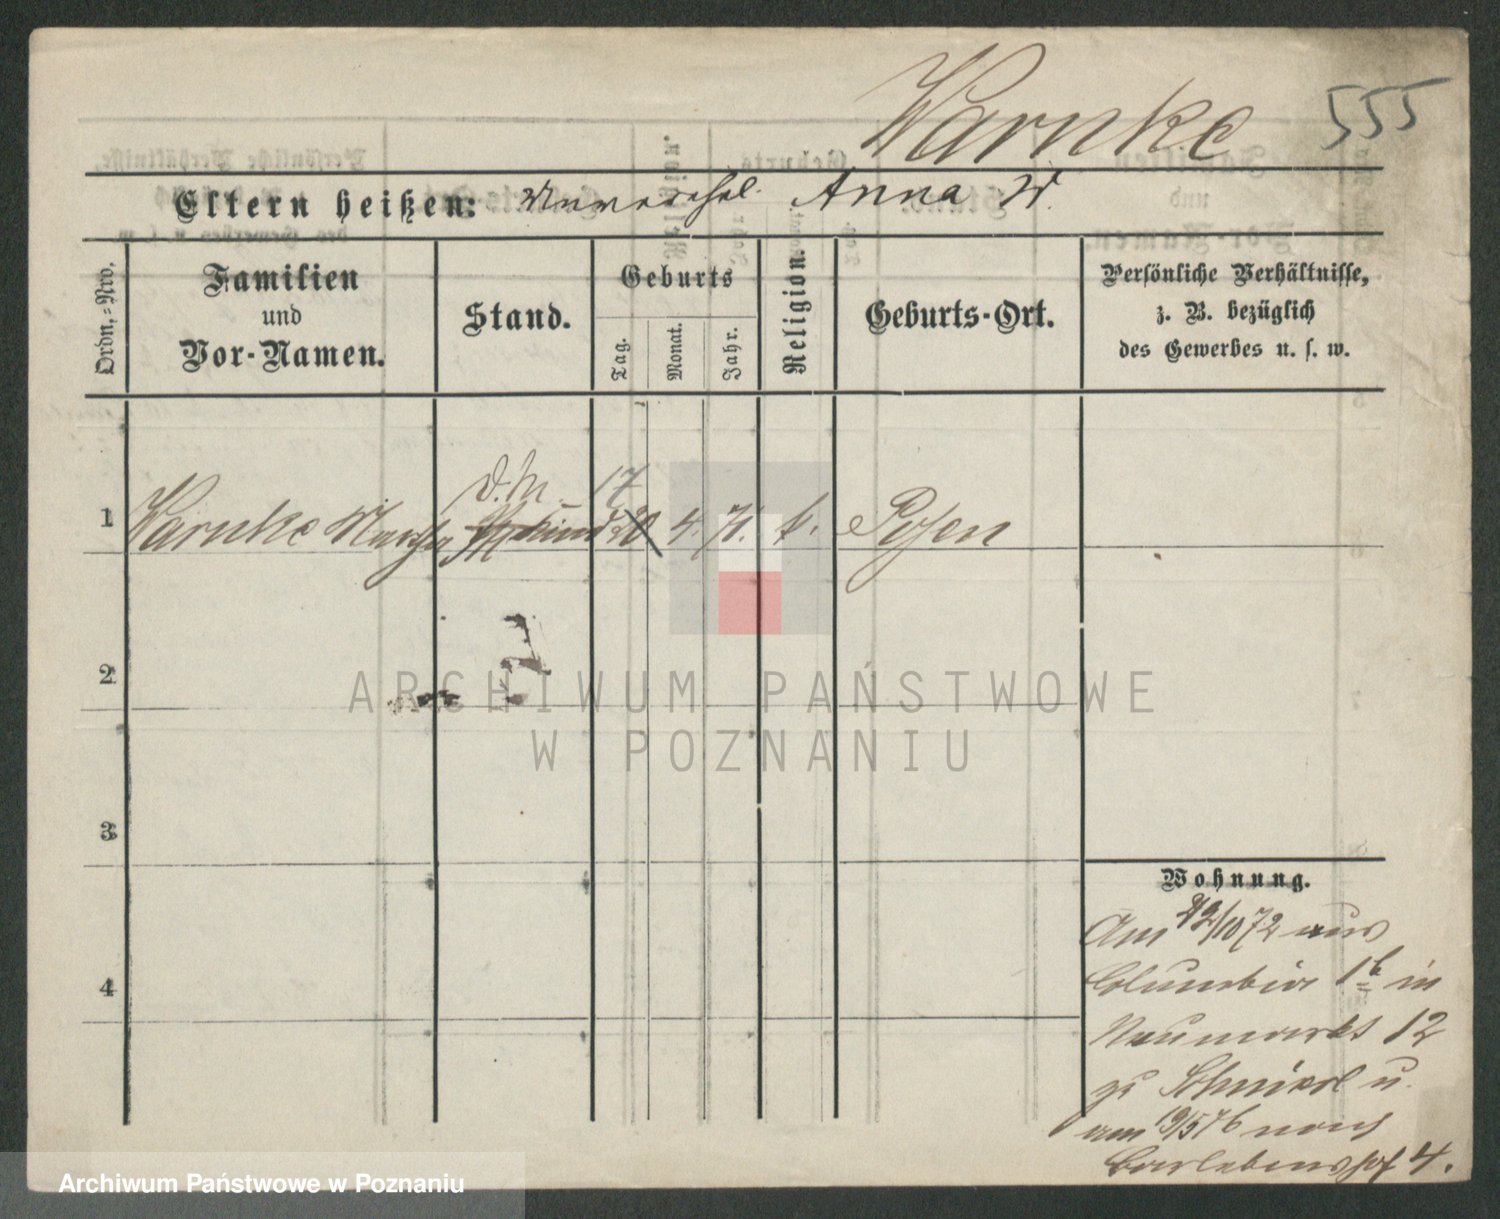 Warnke 555
Eltern heißen: Unverehel. Anna W.
Ordn.-Nro.
Familien
und
Vor-Namen.
Stand.
Geburts
Tag.
Monat.
Jahr.
Religion.
Geburts-Ort.
Persönliche Verhältnisse,
z. B. bezüglich
des Gewerbes u. s. w.
17
1 Warnke Martha 20 4. 71. k. Posen
2
3
4
Wohnung.
Am 22/10 72 aus
Columbia 1b in
Neumarkt 12
zu u.
am 19/5 76 nach
4.
ARCHIWUM PAŃSTWOWE
W POZNANIU
Archiwum Państwowe w Poznaniu